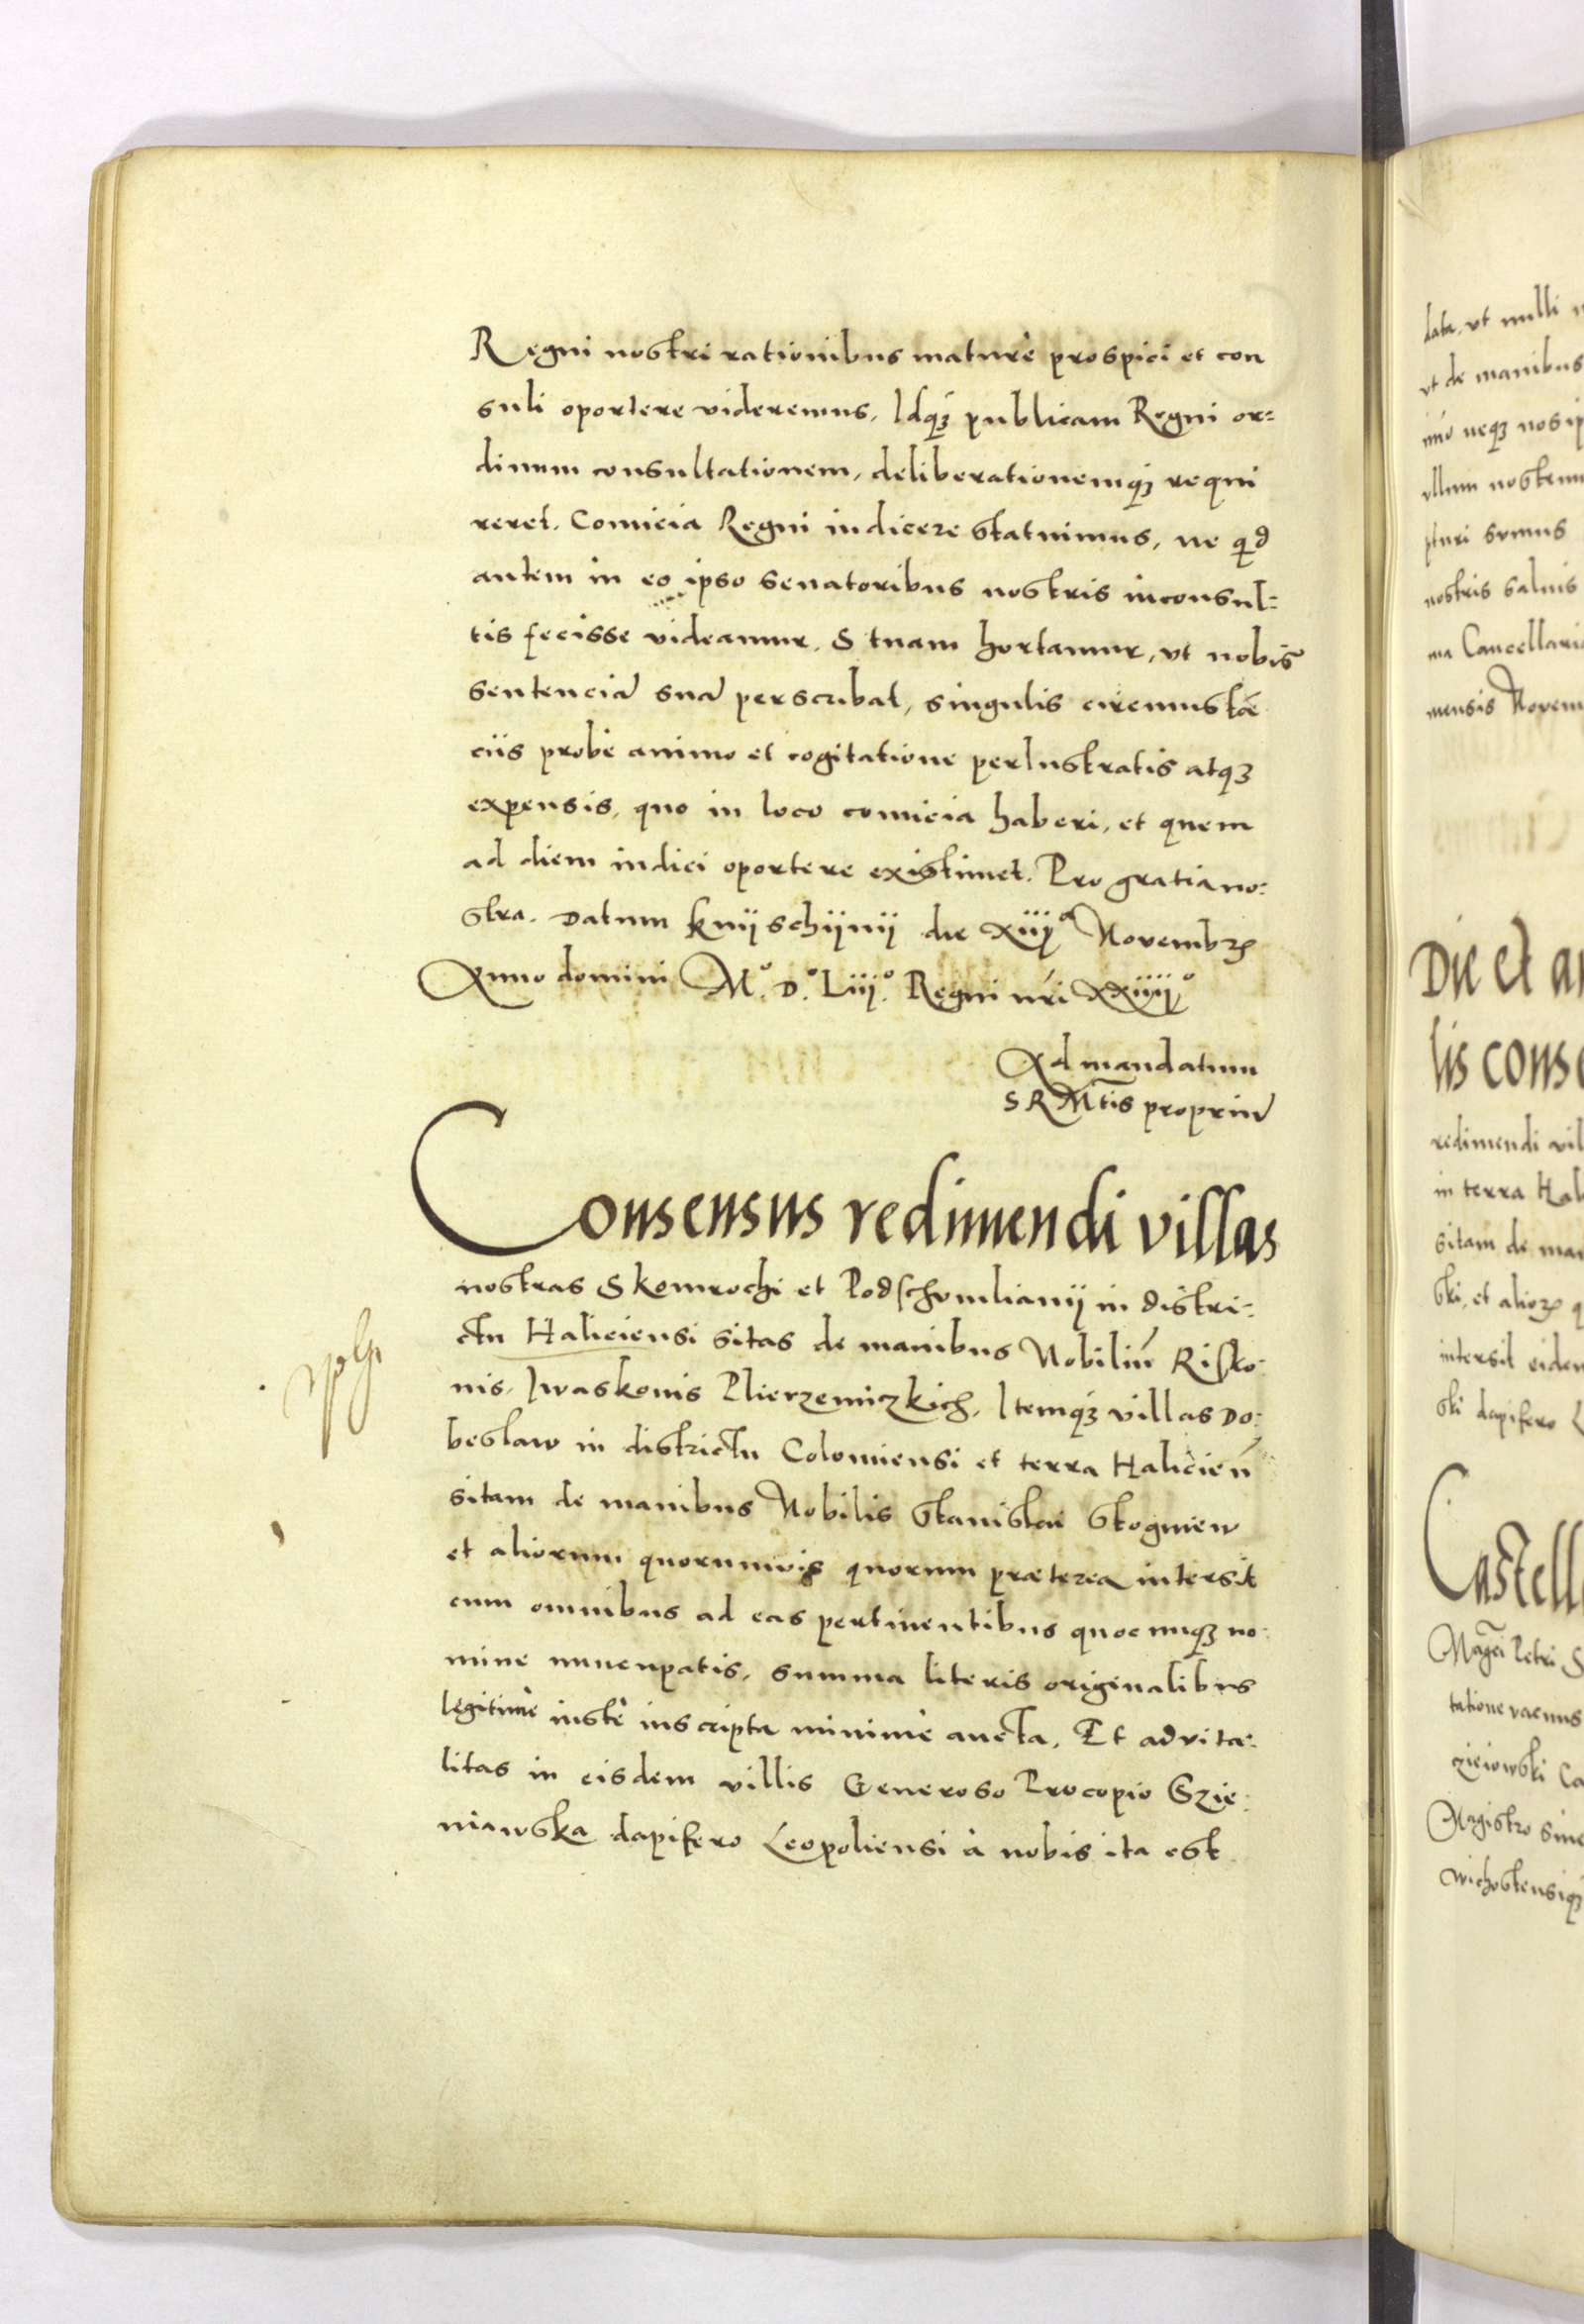 Regni nostri rationibus maturè prospici et con
suli oportere videremus, Idq́ꝫ publicam Regni or=
dinum consultationem, deliberationemq́ꝫ requi
reret. Comicia Regni indicere statuimus, ne qd
autem in eo ipso senatoribus nostris inconsul=
tis fecisse videamur. S tuam hortamur, vt nobis
sentenciā suā perscribat, singulis circumstā
ciis probè animo et cogitatione perlustratis atqꝫ
expensis, quo in loco comicia haberi, et quem
ad diem indici oportere existimet. Pro gratia no=
stra. Datum Knijschijnij die xiijᵃ Novembrꝭ
Anno domini Mº. Dº. Liijº. Regni nr̃i xxiiijº
Ad mandatum
S R Mtis propriū
Consensus redimendi villas
nostras Skomrochi et Podschvmlianij in distri=
ctu Haliciensi sitas de manibus Nobiliū Risko=
nis, Iwaskonis Plierzemiczkich, Itemq́ꝫ villas Do=
beslaw in districtu Colomiensi et terra Halicień
sitam de manibus Nobilis Stanislai Stogniew
et aliorum quorumvis quorum præterea intersit
cum omnibus ad eas pertinentibus quocumqꝫ no=
mine nuncupatis, summa literis originalibus
legitimè iustè inscripta minimè aucta, Et advita=
litas in eisdem villis Generoso Procopio Szie=
niawska dapifero Leopoliensi à nobis ita est
data, vt nulli
vt de manibus
imo neqꝫ nos ip
ullum nostrum
pturi sumus
nostris salvis
ma Cancellari
mensis Novem
Die et an
lis conse
redimendi vil
in terra Hal
sitam de man
ski, et aliorꝭ q
intersit eidem
ski dapifero L
Castell
Magci Petri S
tatione vacuus
Magistro